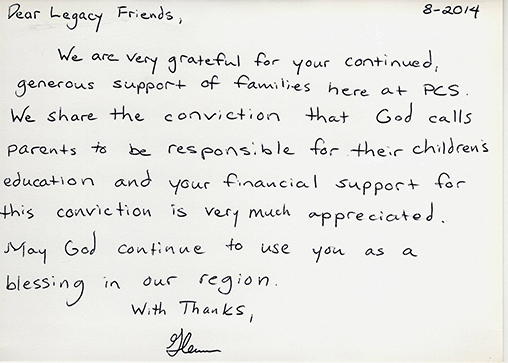 Dear Legacy Friends, 8-2014
We are very grateful for your continued,
generous support of families here at PCS.
We share the conviction that God calls
parents to be responsible for their children's
education and your financial support for
this conviction is very much appreciated.
May God continue to use you as a
blessing in our region.
With Thanks,
Glenn